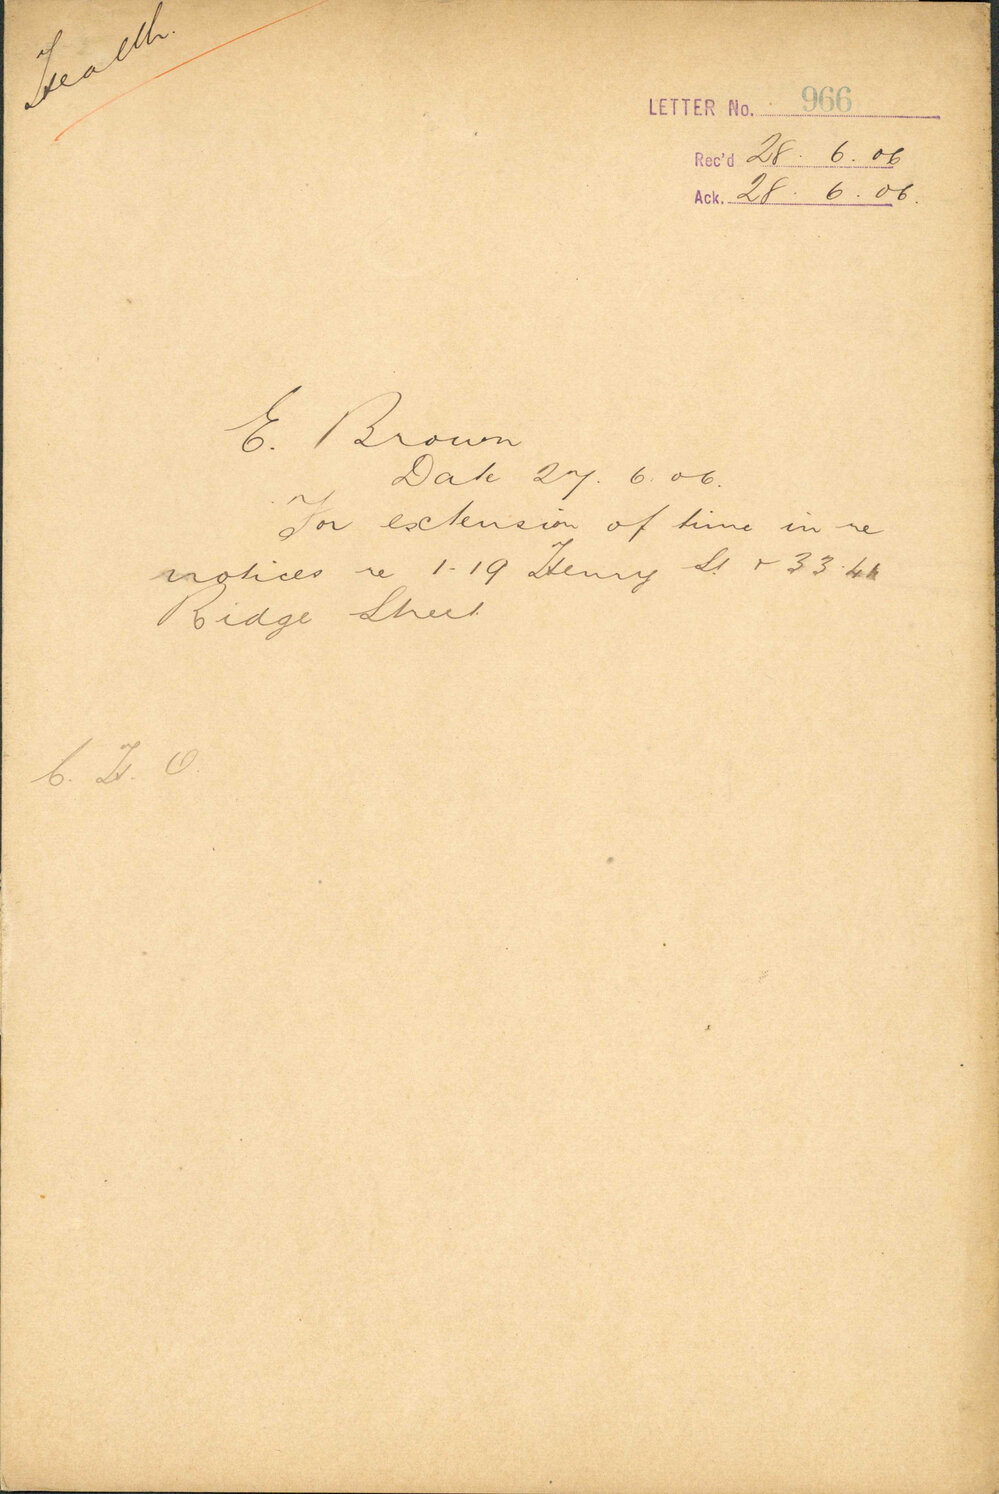 Health.
LETTER No. 966
Rec'd 28. 6. 06
Ack. 28. 6. 06.
E. Brown
Date 27. 6. 06.
For extension of time in re
notices re 1-19 Henry St & 33.
Ridge Street
C. H. O.